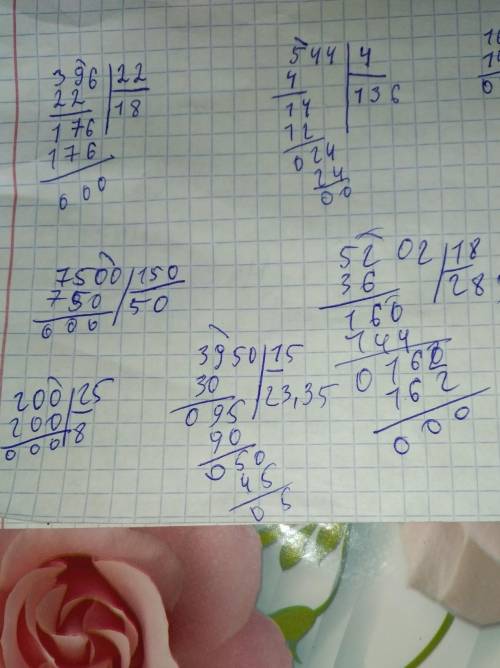 396 | 22
22 | 18
176
176
000
544 | 4
4 | 136
14
12
024
24
00
7500 | 150
750 | 50
000
5202 | 18
36 | 28
160
144
0162
162
000
3950 | 15
30 | 23,35
095
90
050
45
05
200 | 25
200 | 8
000